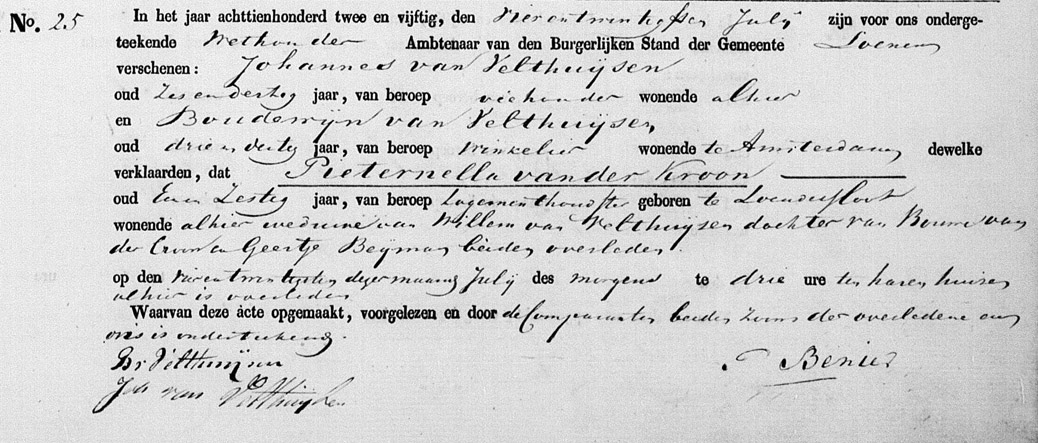 No. 25 In het jaar achttienhonderd twee en vijftig, den Vierentwintigsten July zijn voor ons onderge-
teekende Wethouder Ambtenaar van den Burgerlijken Stand der Gemeente Loenen
verschenen: Johannes van Velthuijsen
oud Zesendertig jaar, van beroep veehouder wonende alhier
en Boudewijn van Velthuijsen,
oud drieenveertig jaar, van beroep Winkelier wonende te Amsterdam dewelke
verklaarden, dat Pieternella van der Kroon
oud Eenen Zestig jaar, van beroep Logementhoudster geboren te Loenersloot
wonende alhier weduwe van Willem van Velthuijsen dochter van Bouwe van
der Croon en Geertje Beijman beiden overleden.
op den vierentwintigsten dezer maand July des morgens te drie ure ten haren huize
alhier is overleden
Waarvan deze acte opgemaakt, voorgelezen en door de Comparanten beiden zoons der overledene en
ons is onderteekend.
Bn Velthuijsen Benier
Joh van Velthuysen